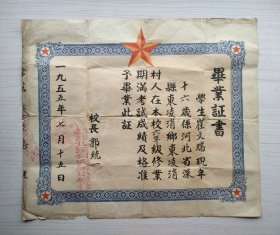 畢業証書
學生崔文瑞現年
十六歲係河北省深
縣東凌消鄉東凌消
村人在本校高級修業
期滿考試成績及格准
予畢業此証
校長郭統一
一九五五年七月十五日